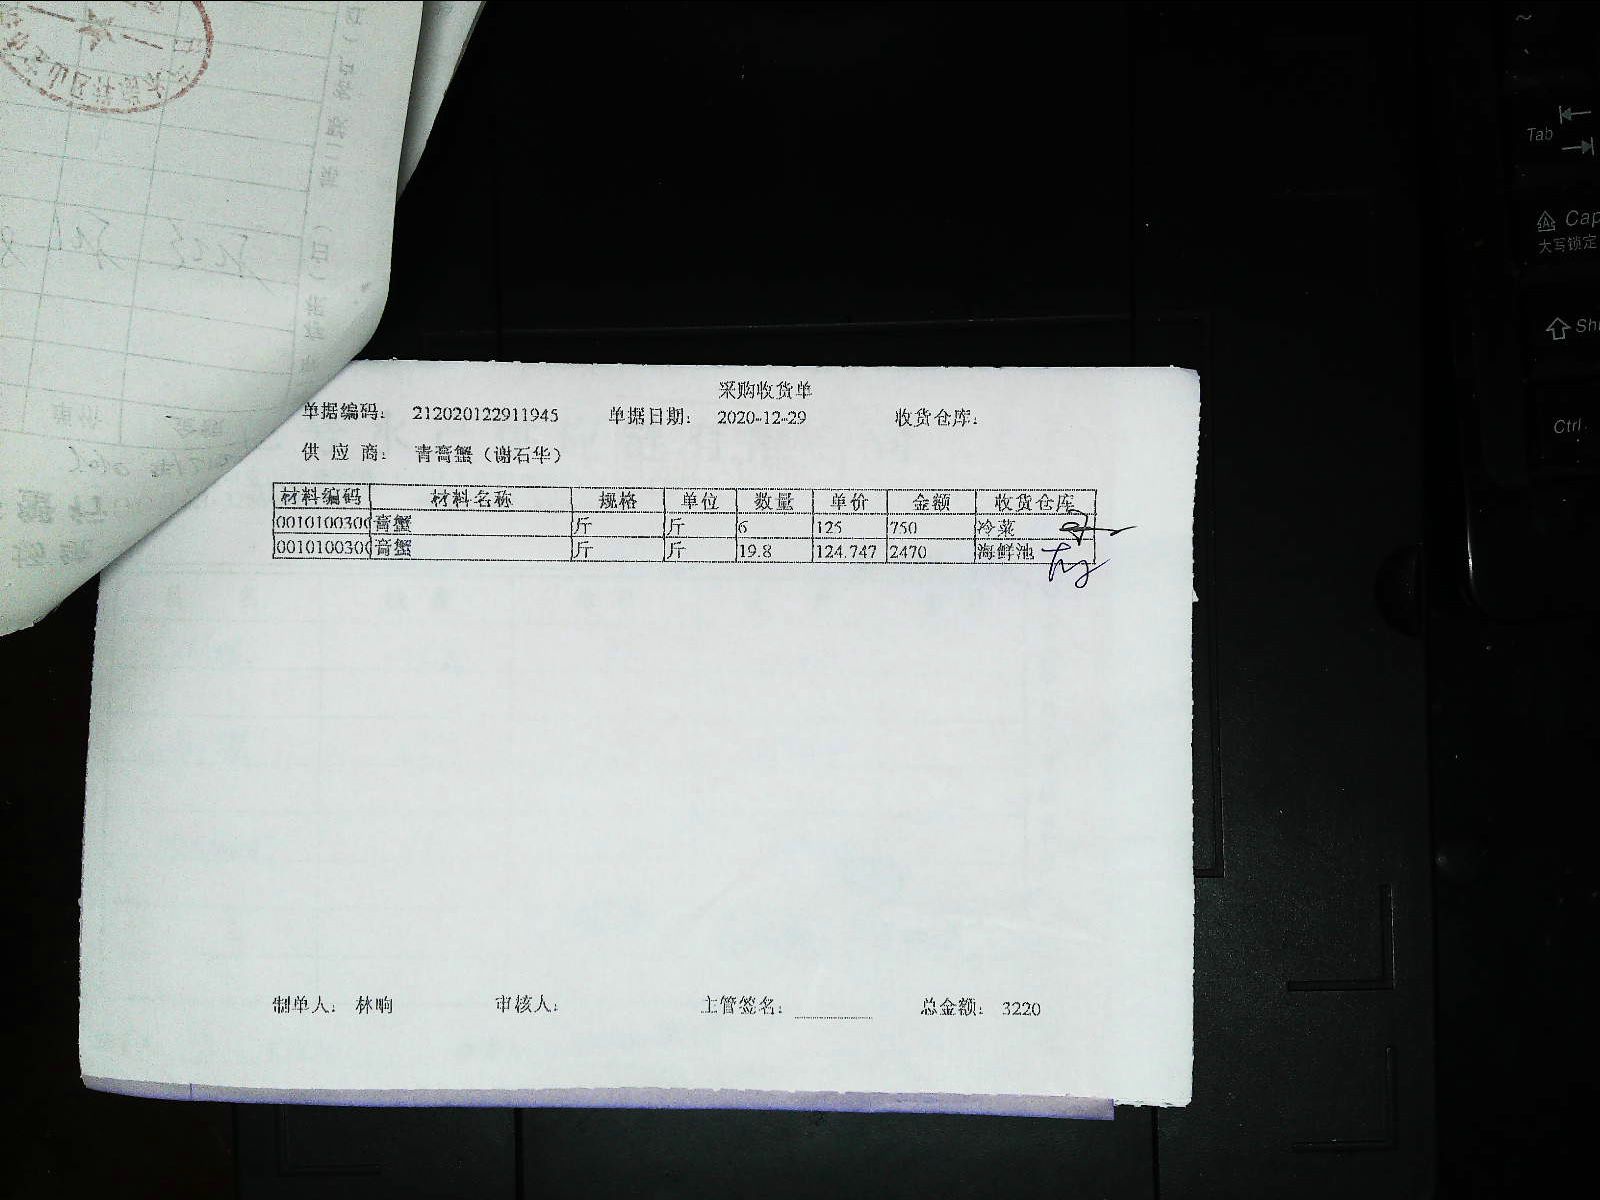 采购收货单
单据编码: 212020122911945 单据日期: 2020-12-29 收货仓库:
供 应 商: 青膏蟹（谢石华）
材料编码 材料名称 规格 单位 数量 单价 金额 收货仓库
0010100300 膏蟹 斤 斤 6 125 750 冷菜
0010100300 膏蟹 斤 斤 19.8 124.747 2470 海鲜池
制单人: 林晌 审核人: 主管签名: 总金额: 3220
Tab
Cap
大写锁定
Shi
Ctrl